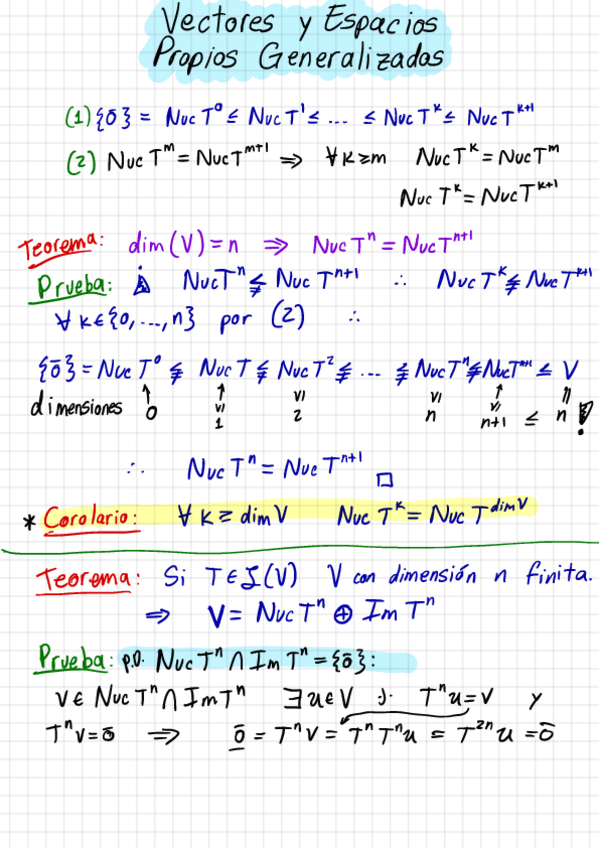 Vectores y Espacios
Propios Generalizados
(1) {ō} = Nuc T⁰ ≤ Nuc T¹ ≤ ... ≤ Nuc Tᵏ ≤ Nuc Tᵏ⁺¹
(2) Nuc Tᵐ = Nuc Tᵐ⁺¹ ⇒ ∀ k ≥ m Nuc Tᵏ = Nuc Tᵐ
Nuc Tᵏ = Nuc Tᵏ⁺¹
Teorema: dim(V) = n ⇒ Nuc Tⁿ = Nuc Tⁿ⁺¹
Prueba: Nuc Tⁿ ≨ Nuc Tⁿ⁺¹ ∴ Nuc Tᵏ ≨ Nuc Tᵏ⁺¹
∀ k ∈ {0, ..., n} por (2) ∴
{ō} = Nuc T⁰ ≨ Nuc T ≨ Nuc T² ≨ ... ≨ Nuc Tⁿ ≨ Nuc Tⁿ⁺¹ ≤ V
dimensiones 0 1 2 n n+1 ≤ n !
∴ Nuc Tⁿ = Nuc Tⁿ⁺¹ □
* Corolario: ∀ k ≥ dim V Nuc Tᵏ = Nuc T^dim V
Teorema: Si T ∈ ℒ(V) V con dimensión n finita.
⇒ V = Nuc Tⁿ ⊕ Im Tⁿ
Prueba: p.D. Nuc Tⁿ ∩ Im Tⁿ = {ō} :
v ∈ Nuc Tⁿ ∩ Im Tⁿ ∃ u ∈ V ·)· Tⁿu = v y
Tⁿv = ō ⇒ ō = Tⁿv = TⁿTⁿu = T²ⁿu = ō